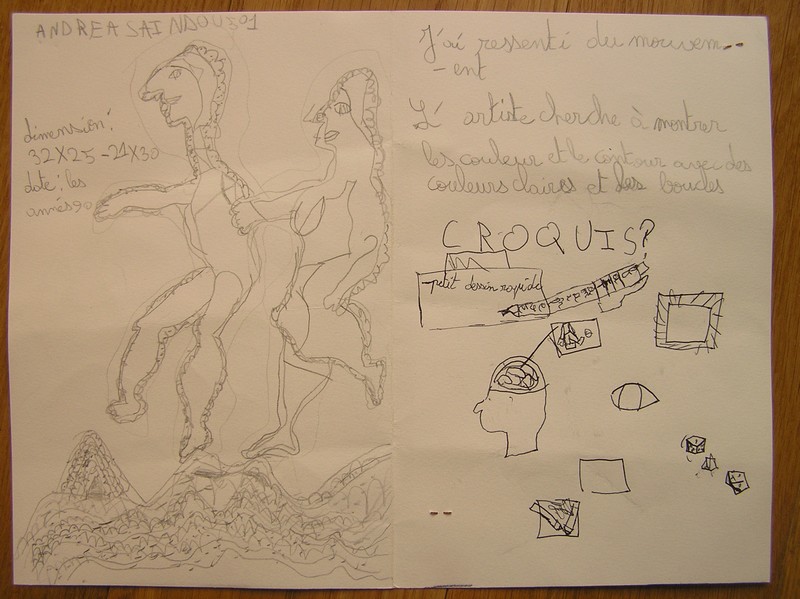 ANDREA SAINDOU 501
dimension:
32X25-21X30
date: les
années90
J'ai ressenti du mouvem--
-ent
L'artiste cherche à montrer
les couleur et le contour avec des
couleurs claires et des boucles
CROQUIS?
petit dessin rapide